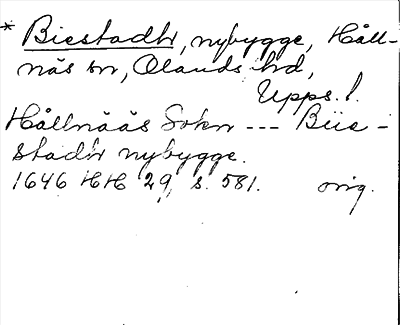 * Biestadhr, nybygge, Håll-
näs sn, Olands hd,
Upps. l.
Hållnääs Sokn --- Biie-
stadhr nybygge.
1646 HH 29, s. 581. orig.